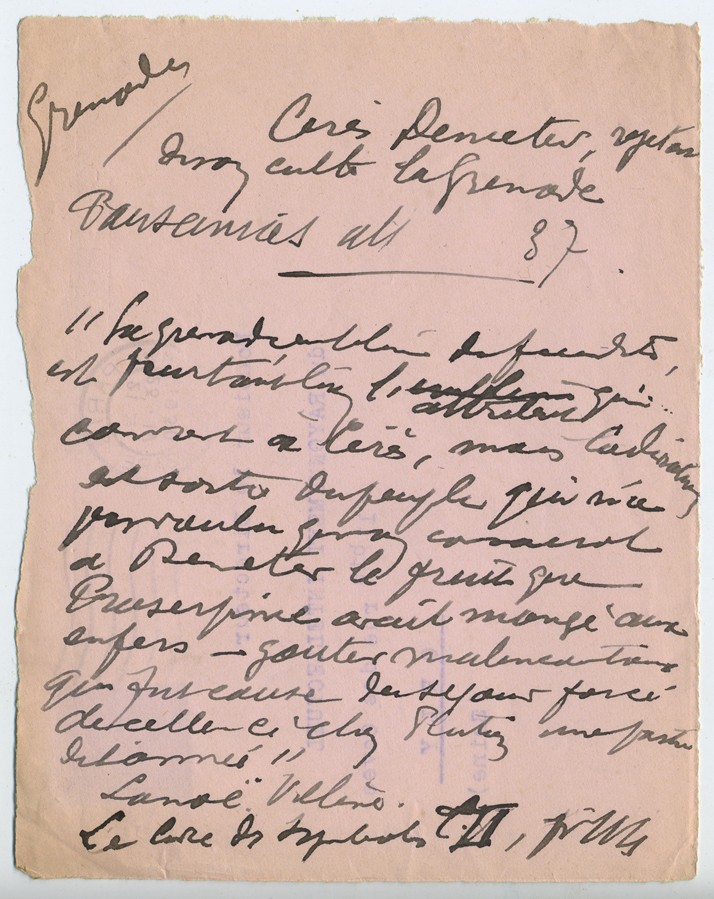 Grenades
Cérès Demeter, rejeta
de son culte la grenade
Pausanias 37
"La grenade emblème de fécondité,
est pourtant bien l' attribut qui
convient à Cérès, mais
est sortie du peuple qui n'a
pas voulu qu'on consacrat
a Demeter le fruit que
Proserpine avait mangé aux
enfers – gouter malencontreux
qui fut cause du séjour forcé
de celle-ci chez Pluton une partie
de l'année"
Lanoë Villène.
Le Livre des Symboles t III,